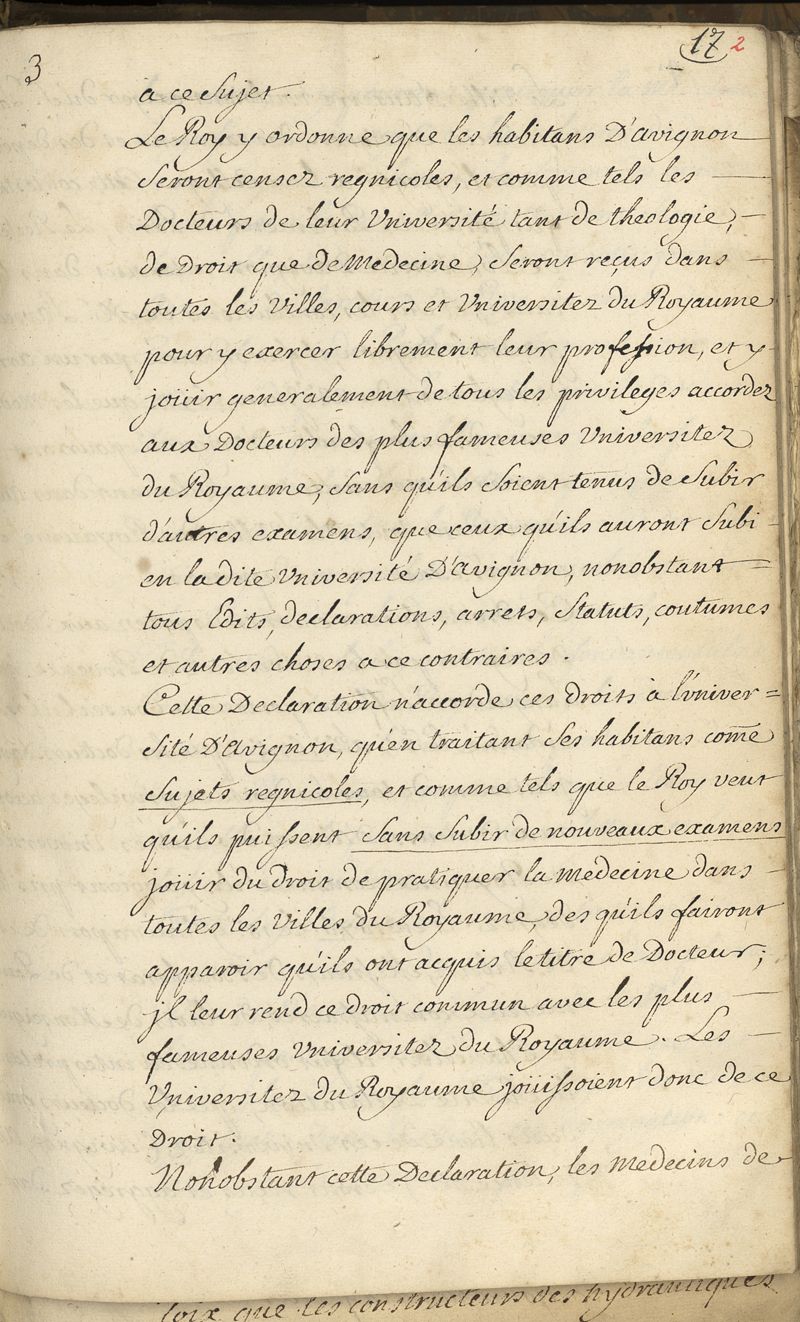 3
17 2
a ce Sujet.
Le Roy y ordonne que les habitans D'avignon
Seront censez regnicoles, et comme tels les
Docteurs de leur Université tant de theologie,
de Droit que de Medecine, Seront reçus dans
toutes les Villes, cours et Universitez du Royaume
pour y exercer librement leur profession, et y
joüir generalement de tous les privileges accordez
aux Docteurs des plus fameuses Universitez
du Royaume, Sans qu'ils Soient tenus de Subir
d'autres examens, que ceux qu'ils auront Subi
en la dite Université D'Avignon, nonobstant =
tous Edits, declarations, arrets, Statuts, coutumes
et autres choses a ce contraires.
Cette Declaration n'accorde ces droits à l'univer=
Sité D'Avignon, qu'en traitant Ses habitans com̃e
Sujets regnicoles, et comme tels que le Roy veut
qu'ils puissent Sans Subir de nouveaux examens
joüir du droit de pratiquer la Medecine dans
toutes les Villes du Royaume, des qu'ils fairont
apparoir qu'ils ont acquis le titre de Docteur;
jl leur rend ce droit commun avec les plus
fameuses Universitez du Royaume. Les
Universitez du Royaume joüissoient donc de ce
Droit.
Nonobstant cette Declaration, les Medecins de
loix que les constructeurs des hydrauliques